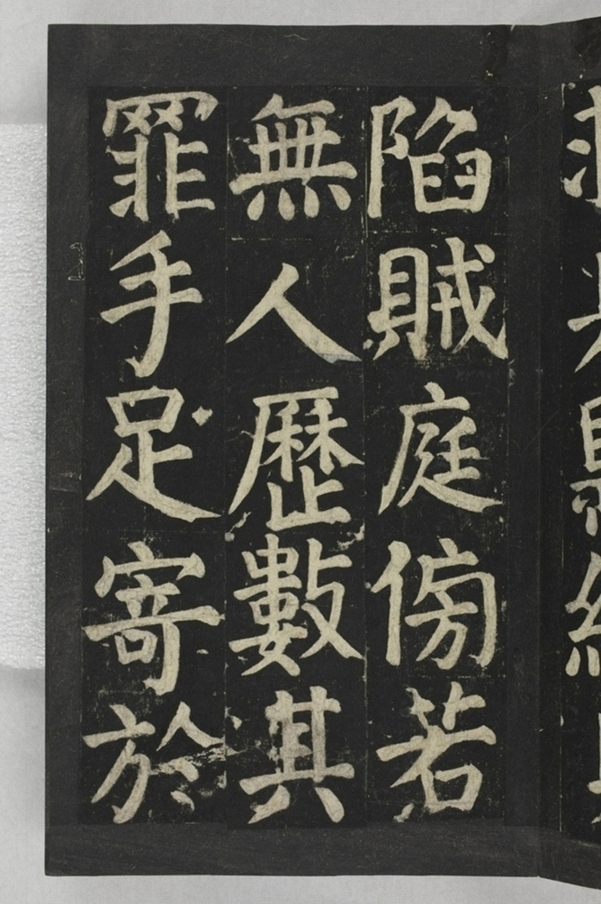 陷賊庭傍若
無人歷數其
罪手足寄於